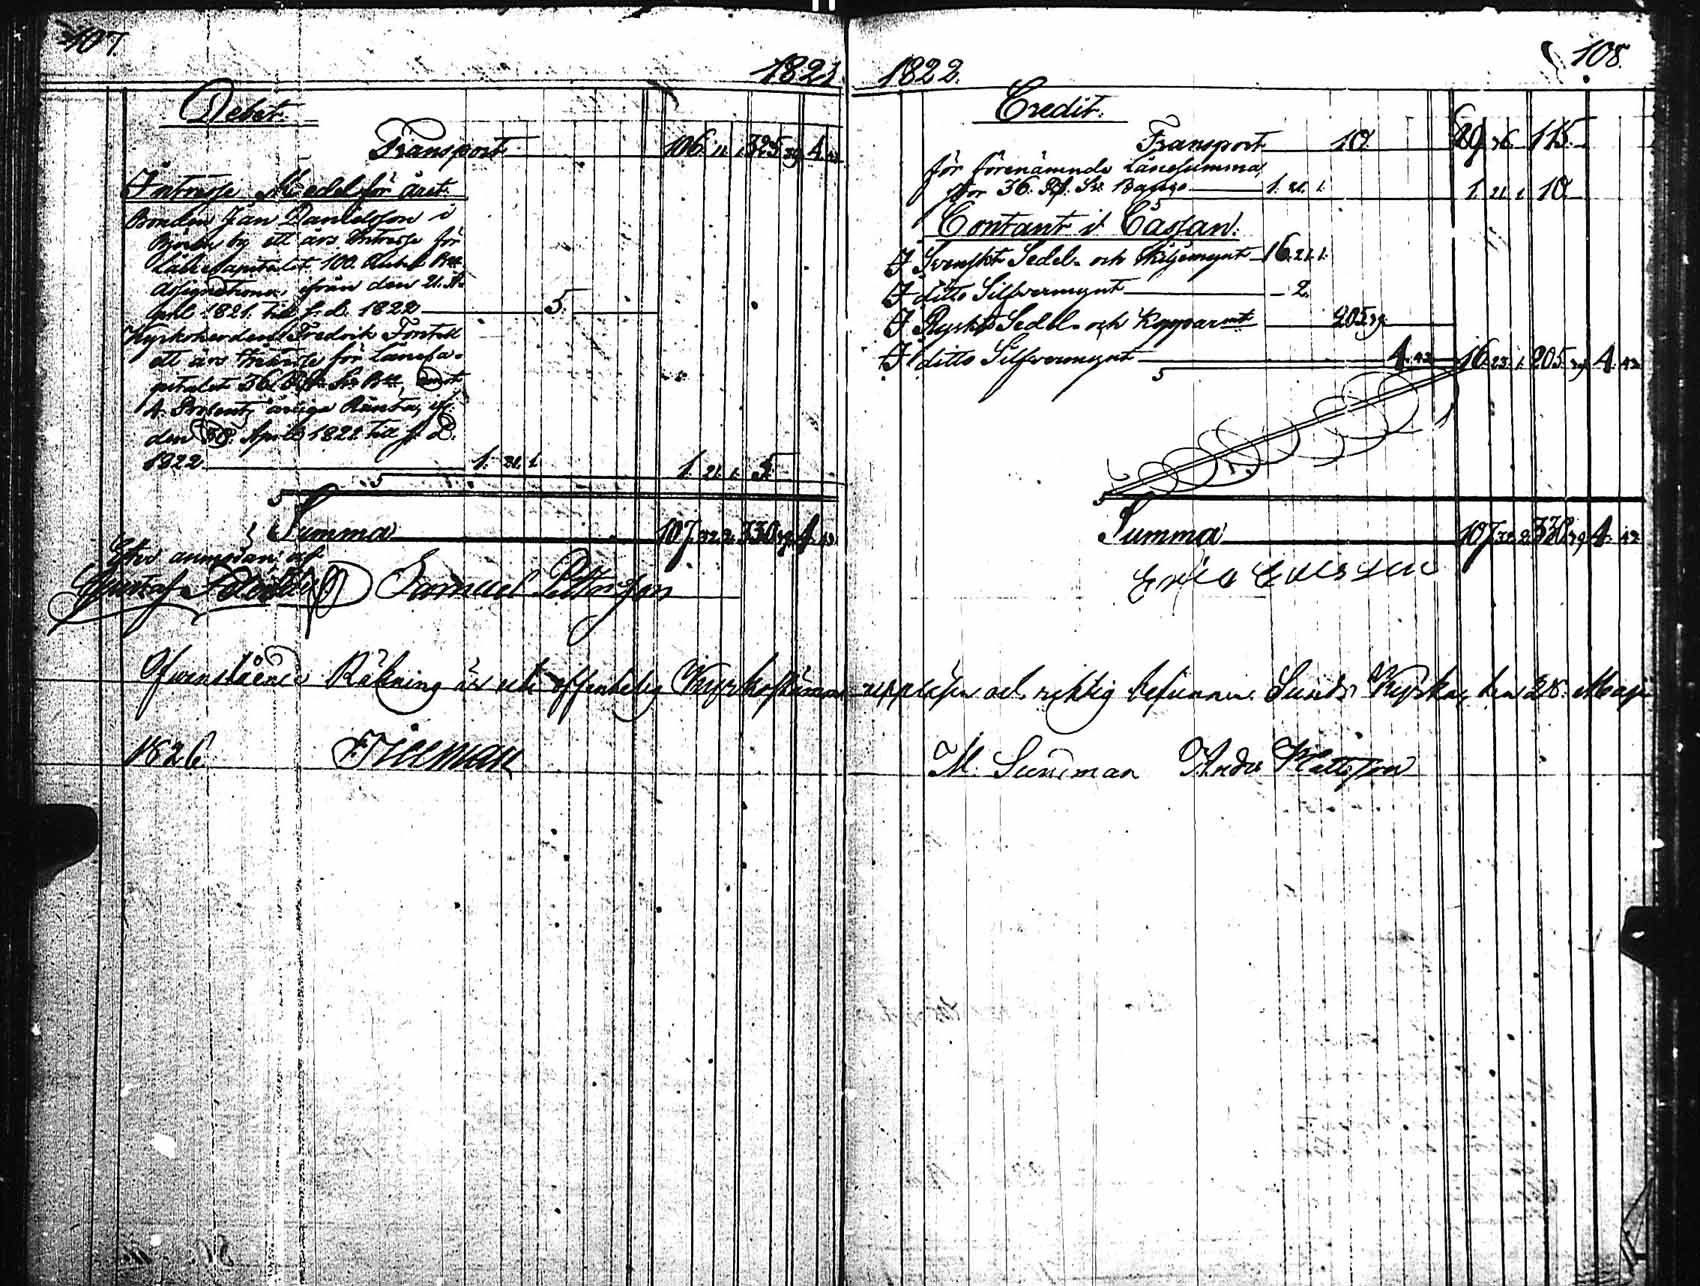 107.
1821
Debet.
Transport 106. 11. 1. 325. 39 4. 42
Intresse Medel för året.
Bonden Jan Danielsson i
by ett års Intresse för
Lånecapitalet 100. Rubel Bco
Assignationer, ifrån den 21. 
April 1821. till s. d. 1822 5.
Kyrkoherden Fredrik
ett års Intresse för Laneca-
pitalet 36. Rd. Sv. Bco, emot
4. Procents årliga Ränta, ifr.
den 30. April 1821. till s. D.
1822 1. 21. 1. 1. 21. 1. 5.
Summa 107. 32. 2. 330. 39 4. 42
Efter anmodan af
Gustaf Samuel Pettersson
Ofvanstående Räkning är uti offentelig Kyrkostämma uppläsen och richtig befunnen. Sunds Kyrka, den 28. Maji
1826
1822.
108.
Credit.
Transport 10. 89 76. 115.
för förenämnde Lånesumma
för 36. Rd. Sv. Banco 1. 21. 1. 1. 21. 1. 10.
Contant i Cassan.
I Svenskt Sedel- och Skiljemynt 16. 21. 1.
I ditto Silfvermynt 2.
I Ryskt Sedel- och Kopparmt 205. 39
I ditto Silfvermynt 4. 42 16. 23. 1. 205. 39 4. 42
Summa 107. 32. 2. 330. 39 4. 42
Eric Ericsson
M. Sundman Anders Mattsson